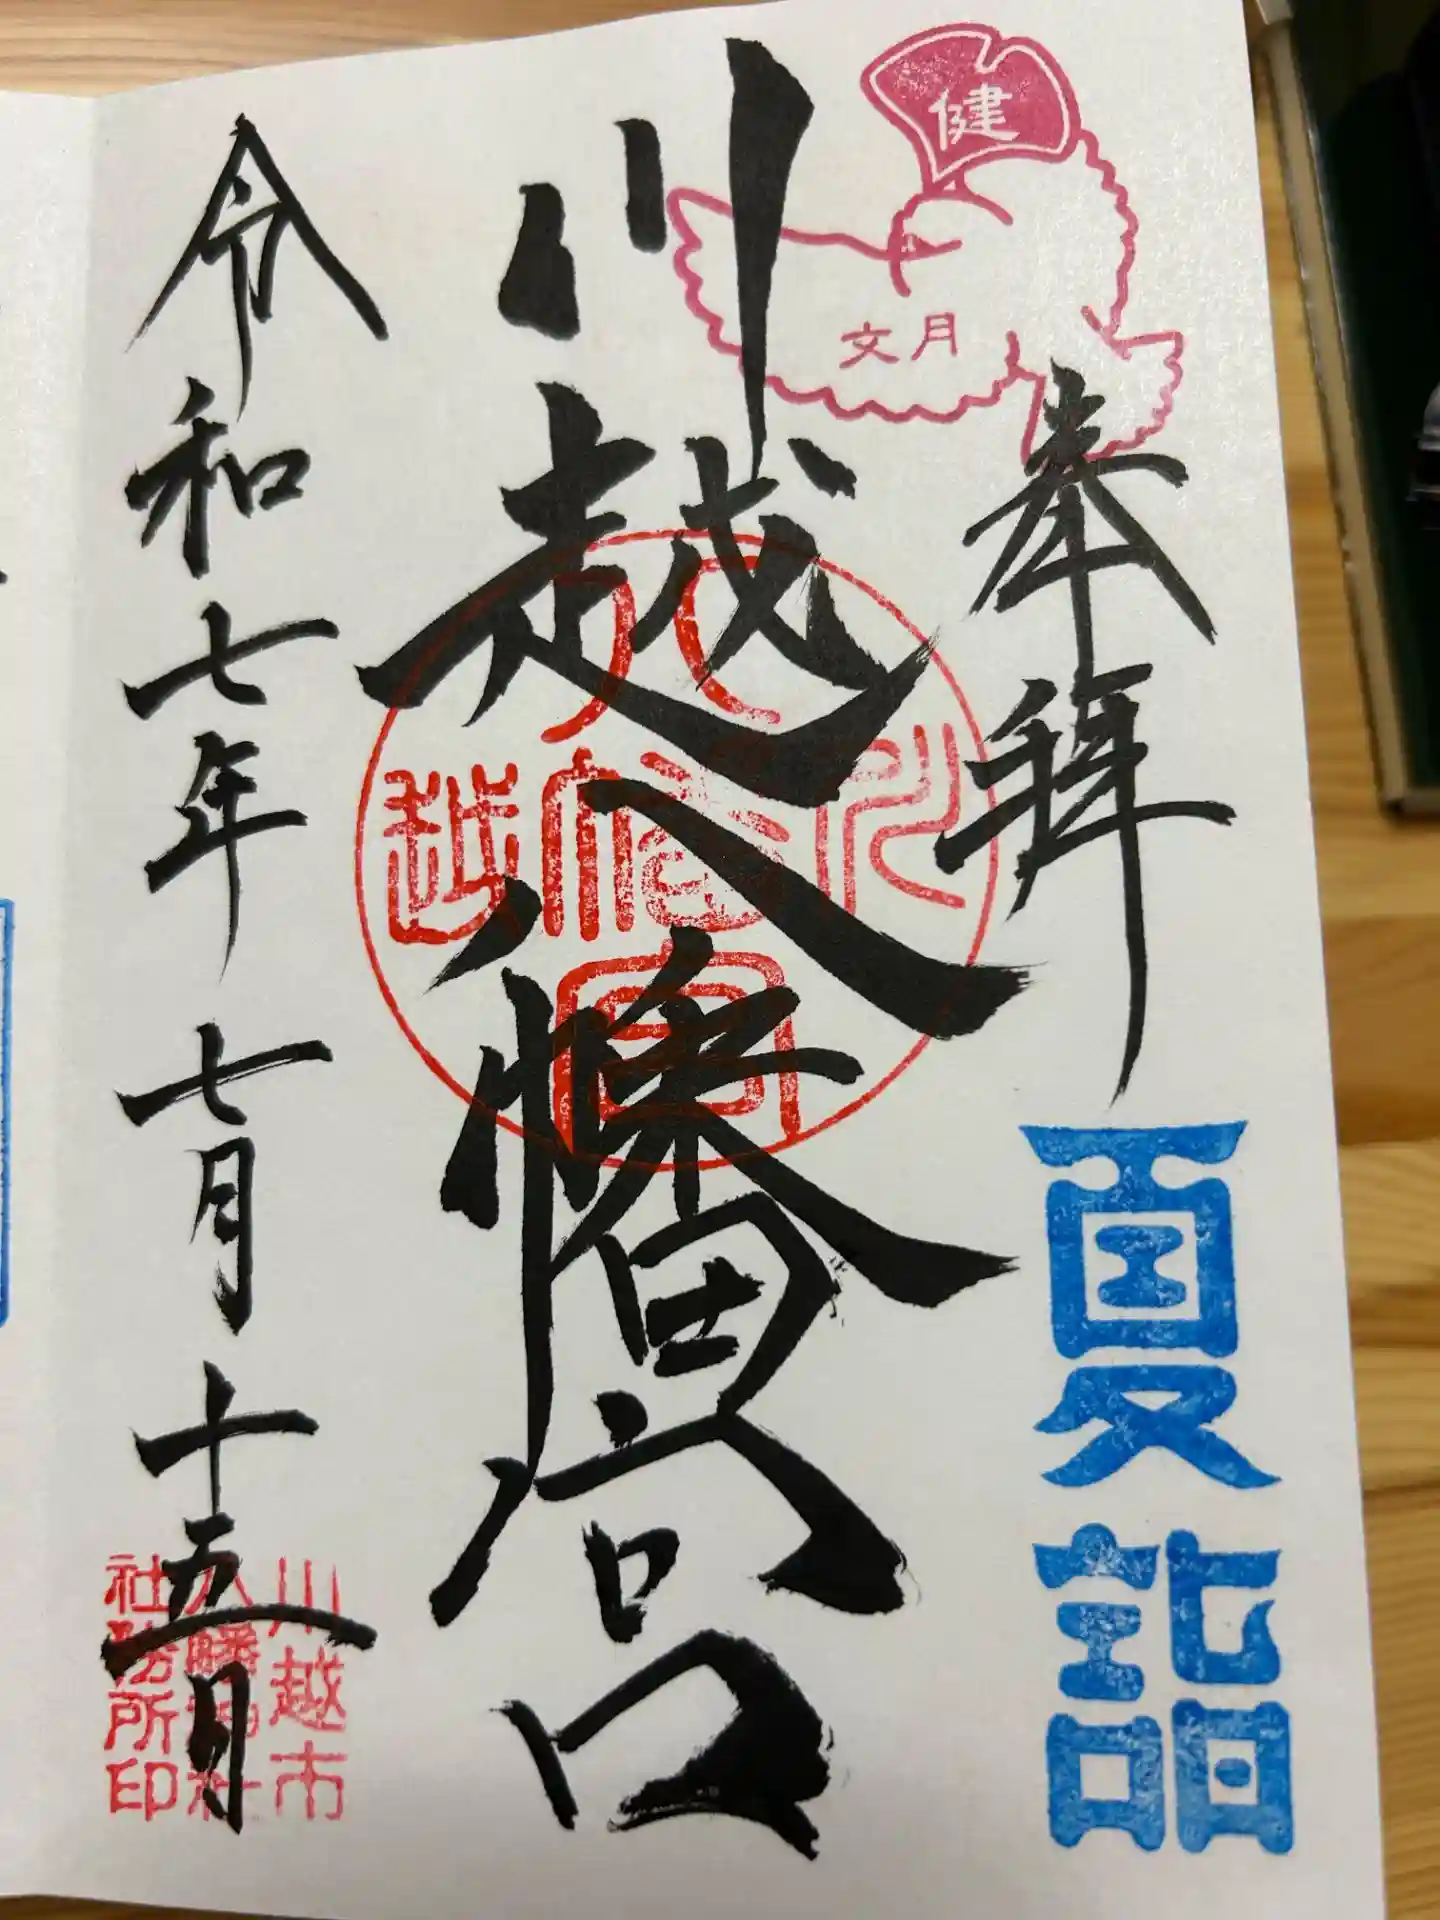 健
文月
奉拝
夏詣
川越八幡宮
川越八幡宮
令和七年七月十五日
川越市
八幡神社
社務所印